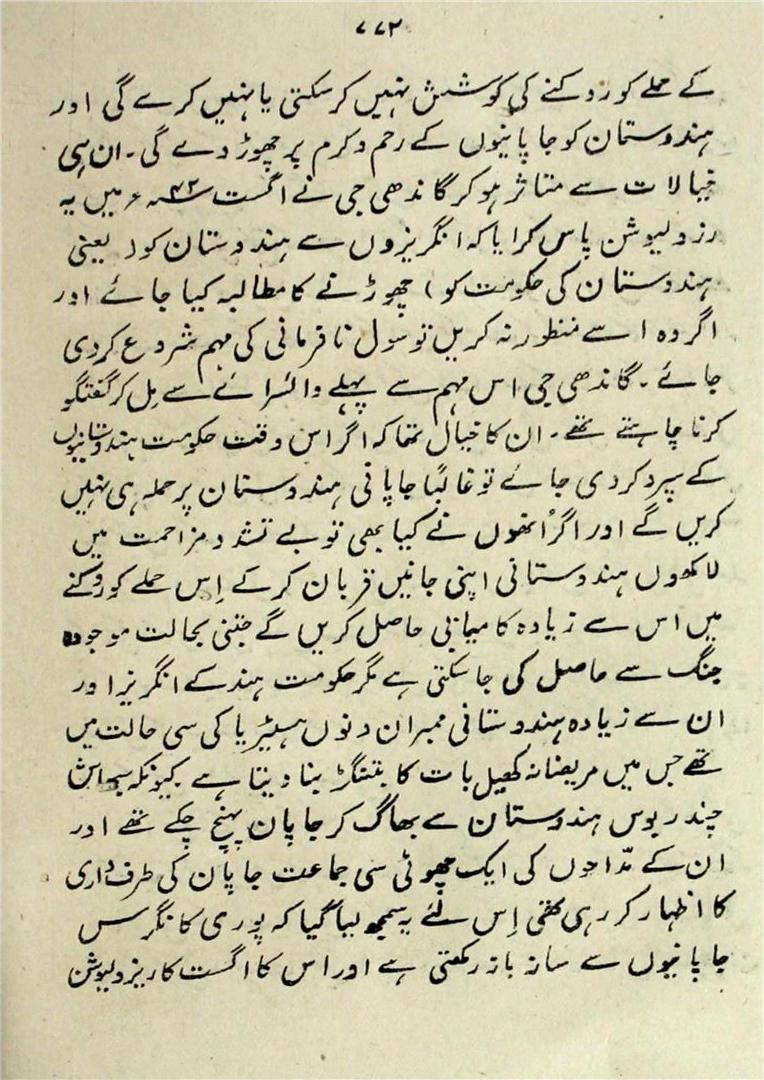 ۷۷۲
کے حملے کو روکنے کی کوشش نہیں کرسکتی یا نہیں کرے گی اور
ہندوستان کو جاپانیوں کے رحم و کرم پر چھوڑ دے گی۔ ان ہی
خیالات سے متاثر ہوکر گاندھی جی نے اگست ۴۲ء میں یہ
رزولیوشن پاس کرایا کہ انگریزوں سے ہندوستان کو (یعنی
ہندوستان کی حکومت کو) چھوڑنے کا مطالبہ کیا جائے اور
اگر وہ اسے منظور نہ کریں تو سول نافرمانی کی مہم شروع کردی
جائے۔ گاندھی جی اس مہم سے پہلے وائسرائے سے مل کر گفتگو
کرنا چاہتے تھے۔ ان کا خیال تھا کہ اگر اس وقت حکومت ہندوستانیوں
کے سپرد کردی جائے تو غالبًا جاپانی ہندوستان پر حملہ ہی نہیں
کریں گے اور اگر اُنھوں نے کیا بھی تو بے تشدد مزاحمت میں
لاکھوں ہندوستانی اپنی جانیں قربان کرکے اِس حملے کو روکنے
میں اس سے زیادہ کامیابی حاصل کریں گے جتنی بحالت موجودہ
جنگ سے حاصل کی جاسکتی ہے مگر حکومت ہند کے انگریز اور
ان سے زیادہ ہندوستانی ممبران دنوں ہسٹیریا کی سی حالت میں
تھے جس میں مریضانہ تخیل بات کا بتنگڑ بنا دیتا ہے۔ کیونکہ سبھاش
چندر بوس ہندوستان سے بھاگ کر جاپان پہنچ چکے تھے اور
ان کے مدّاحوں کی ایک چھوٹی سی جماعت جاپان کی طرف داری
کا اظہار کر رہی تھی اِس لئے یہ سمجھ لیا گیا کہ پوری کانگرس
جاپانیوں سے ساز باز رکھتی ہے اور اس کا اگست کا ریزولیوشن